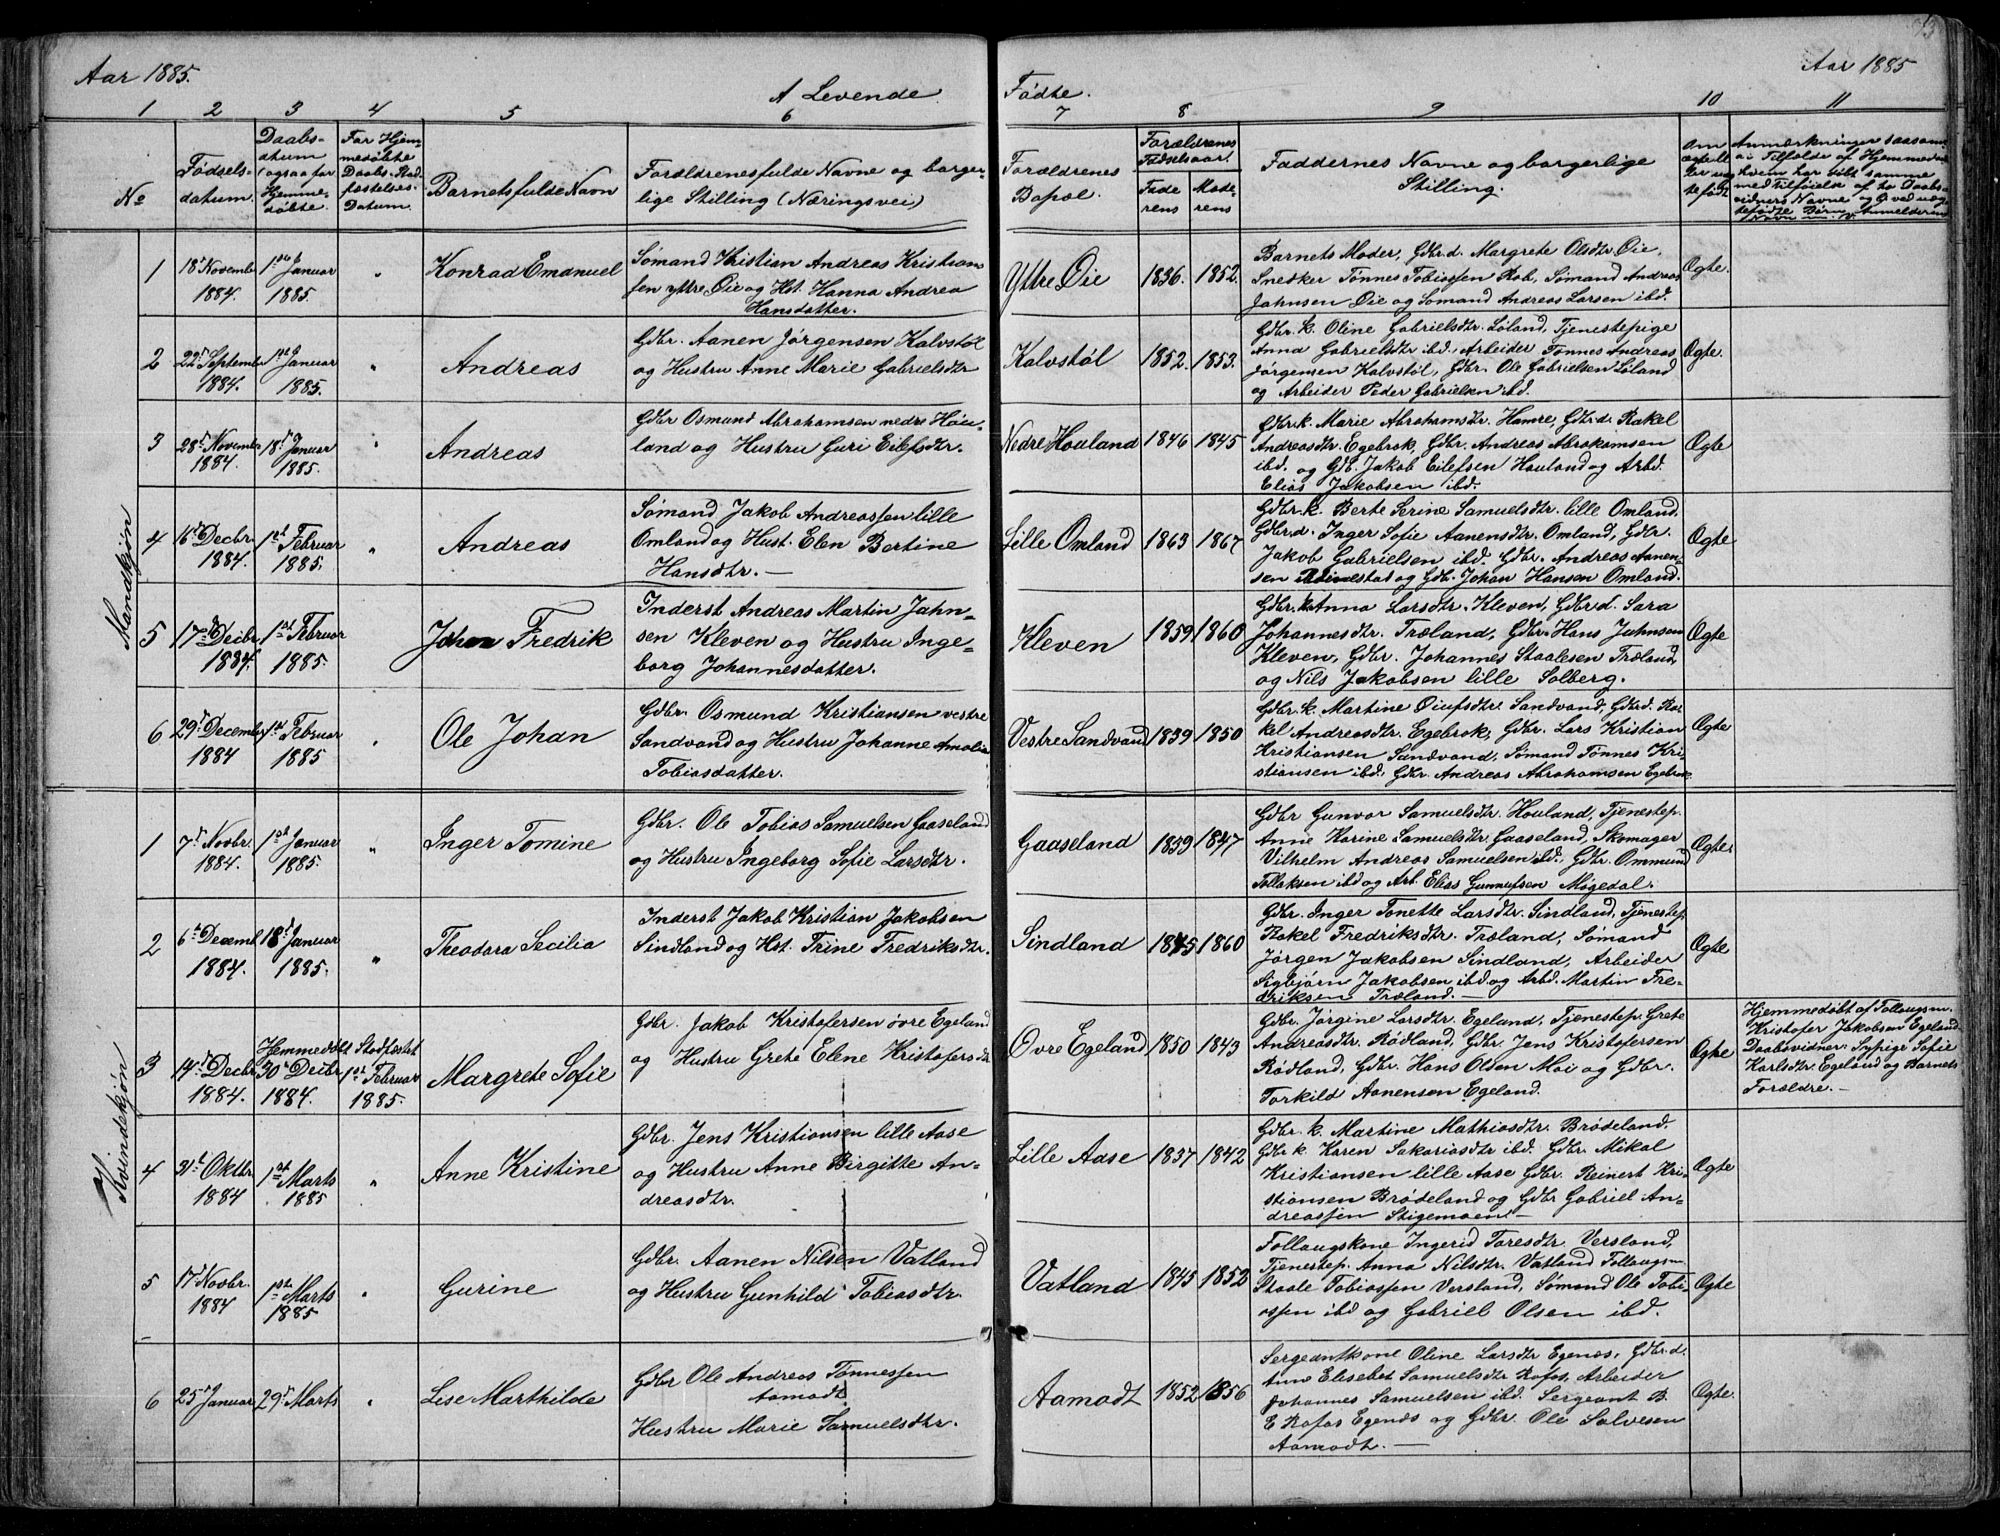 Aar 1885.
A Levende
Fødte.
Aar 1885
1 2 3 4 5 6 7 8 9 10 11
No
Fødsels-
datum.
Daabs-
datum
(ogsaa for
Hjemme-
døbte.
For Hjem-
medøbte
Daabs-Stad-
fæstelses-
Datum.
Barnets fulde Navn
Forældrenes fulde Navne og borger-
lige Stilling (Næringsvei)
Forældrenes
Bopæl.
Forældrenes
Fødselsaar.
Fade
rens
Mode-
rens
Faddernes Navne og borgerlige
Stilling.
Om
ægte
født
Anmærkninger saasom
i Tilfælde af Hjemmedaab
hvem har døbt samme
med Tilføielse af to Daabs-
vidners Navne og ved uæg-
tefødte Børn Anmelderens
Navn
Mandkjøn
1
18de Novembr
1884.
1ste Januar
1885.
"
Konrad Emanuel
Sømand Kristian Andreas Kristian-
sen yttre Øie og Hst. Hanna Andrea
Hansdatter.
Yttre Øie
1836.
1852.
Barnets Moder, Gdbr.d. Margrete Olsdtr Øie,
Snedker Tønnes Tobiassen Rob, Sømand Andreas
Jahnsen Øie og Sømand Andreas Larsen ibd.
Ægte.
2
22de Septembr
1884.
1ste Januar
1885.
"
Andreas
Gdbr. Aanen Jørgensen Kalvstøl
og Hustru Anne Marie Gabrielsdtr
Kalvstøl
1852.
1853.
Gdbr. k. Oline Gabrielsdtr. Løland, Tjenestepige
Anna Gabrielsdtr ibd., Arbeider Tønnes Andreas
Jørgensen Kalvstøl, Gdbr. Ole Gabrielsen Løland
og Arbeider Peder Gabrielsen ibd.
Ægte.
3
28de Novembr
1884.
18de Januar
1885.
"
Andreas
Gdbr Osmund Abrahamsen nedre Hou-
land og Hustru Guri Eilefsdtr.
Nedre Houland
1846
1845
Gdbr.k. Marie Abrahamsdtr. Hamre, Gdbr.d. Rakel
Andreasdtr. Egebrok, Gdbr. Andreas Abrahamsen
ibd. og Gdb. Jakob Eilefsen Houland og Arbd.
Elias Jakobsen ibd.
Ægte
4
16de Decbr.
1884.
1ste Februar
1885.
"
Andreas
Sømand Jakob Andreassen lille
Omland og Hust. Elen Bertine
Hansdtr. —
Lille Omland
1863
1867
Gdbr.k. Berte Serine Samuelsdtr. lille Omland.
Gdbr.d. Inger Sofie Aanensdtr. Omland, Gdbr.
Jakob Gabrielsen ibd. Gdbr. Andreas Aanen-
sen og Gdbr. Johan Hansen Omland.
Ægte
5
17de Decbr
1884.
1ste Februar
1885
"
Johan Fredrik
Inderst Andreas Martin Jahn-
sen Kleven og Hustru Inge-
borg Johannesdatter.
Kleven
1859
1860
Gdbr.k. Anna Larsdtr. Kleven, Gdbr.d. Sara
Johannesdtr. Træland, Gdbr. Hans Jahnsen
Kleven, Gdbr. Johannes Staalesen Træland,
og Nils Jakobsen lille Solberg.
Ægte
6
29de Decembr
1884
1ste Februar
1885
"
Ole Johan
Gdbr. Osmund Kristiansen vestre
Sandvand og Hustru Johanne Amalia
Tobiasdatter.
Vestre Sandvand
1839
1850
Gdbr. k. Martine Sandvand, Gdbr.d. Ra-
kel Andreasdtr. Egebrok, Gdbr. Lars Kristian
Kristiansen Sandvand, Sømand Tønnes Kri-
stiansen ibd., Gdbr. Andreas Abrahamsen Egebrok
Ægte
Kvindekjøn
1
7de Novbr.
1884.
1ste Januar
1885.
"
Inger Tomine
Gdbr. Ole Tobias Samuelsen Gaaseland
og Hustru Ingeborg Sofie Larsdtr.
Gaaseland
1839
1847
Gdbr Gunvor Samuelsdtr. Houland, Tjenestep.
Anne Karine Samuelsdtr. Gaaseland, Skomager
Vilhelm Andreas Samuelsen ibd., Gdbr. Ommund
Tollaksen ibd og Arb. Elias Gunnufsen Møgedal.
Ægte.
2
6te Decemb.
1884.
18de Januar
1885.
"
Theodora Secilia
Inderst Jakob Kristian Jakobsen
Sindland og Hst. Trine Fredriksdtr.
Sindland
1845
1860
Gdbr. Inger Tonette Larsdtr. Sindland, Tjenestep.
Rakel Fredriksdtr. Træland, Sømand
Jørgen Jakobsen Sindland, Arbeider
Sigbjørn Jakobsen ibd og Arbd. Martin Fre-
driksen Træland. —
Ægte
3
14de Decbr.
1884.
Hjemmedøbt
30te Decbr.
1884.
Stadfæstet
1ste Februar
1885.
Margrete Sofie
Gdbr. Jakob Kristofersen øvre Egeland
og Hustru Grete Elene Kristofersdtr
Øvre Egeland
1850
1843
Gdbr. Jørgine Larsdtr. Egeland, Tjenestep. Grete
Andreasdtr. Rødland, Gdbr. Jens Kristofersen
Rødland, Gdbr. Hans Olsen Moi og Gdbr.
Torkild Aanensen Egeland.
Ægte
Hjemmedøbt af Follaugsm.
Kristofer Jakobsen Egeland.
Daabsvidner: Sypige Sofie
Karlsdtr. Egeland og Barnets
Forældre. —
4
31te Oktbr.
1884
1ste Marts
1885
"
Anne Kristine
Gdbr. Jens Kristiansen lille Aase
og Hustru Anne Birgitte An-
dreasdtr.
Lille Aase
1837
1842
Gdbr. k. Martine Mathiasdtr. Brødeland.
Gdbr k Karen Sakariasdtr ibd. Gdbr. Mikal
Kristiansen lille Aase Gdbr. Reinert Kri-
stiansen Brødeland og Gdbr Gabriel An-
dreassen Stigemoen —
Ægte
5
17de Novbr.
1884
1ste Marts
1885
"
Gurine
Gdbr. Aanen Nilsen Vatland
og Hustru Gunhild Tobiasdtr.
Vatland
1845
1852
Follaugskone Ingerid Taresdtr. Versland,
Tjenestep. Anna Nilsdtr. Vatland Follaugsm
Staale Tobiassen Versland, Sømand Ole Tobi-
assen ibd og Gabriel Olsen ibd.
Ægte
6
25de Januar
29de Marts
"
Lise Marthilde
Gdbr Ole Andreas Tønnessen
Aamodt
Hustru Marie Samuelsdtr.
Aamodt
1852
1856
Sergeantkone Oline Larsdtr Egenæs, Gdbr.d.
Ane Elisebet Samuelsdtr Rofos, Arbeider
Johannes Samuelsen ibd. Sergeant B.
E Rofos Egenæs og Gdbr. Ole Salvesen
Aamodt. —
Ægte.